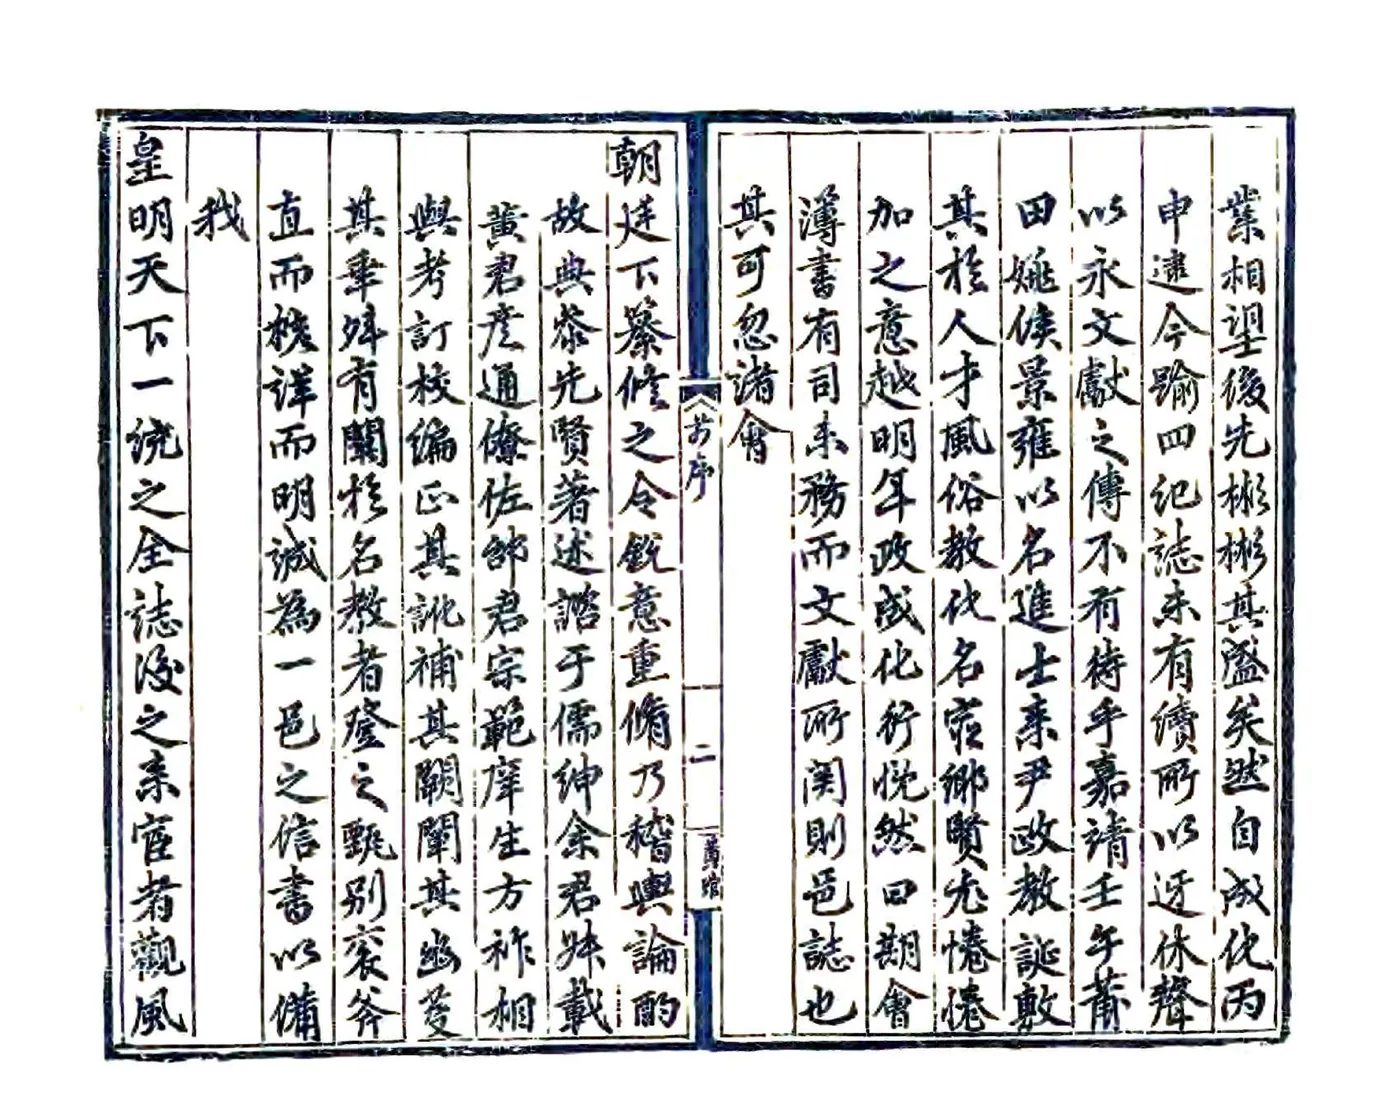 業相望後先彬彬其盛矣然自成化丙
申逮今踰四紀誌未有續所以迓休聲
以永文獻之傳不有待乎嘉靖壬午莆
田姚侯景雍以名進士来尹政教誕敷
其於人才風俗教化名宦鄉賢尤惓惓
加之意越明年政成化行恱然曰期會
簿書有司末務而文獻所関則邑誌也
其可忽諸會
前序
二
朝廷下纂修之令銳意重脩乃稽輿論酌
故典叅先賢著述諮于儒紳余君 載
黃君彦通僚佐邰君宗範庠生方祚相
與考訂校編正其訛補其闕闡其幽芟
其 舛有關於名教者登之甄别衮斧
直而核詳而明誠為一邑之信書以備
我
皇明天下一統之全誌後之来宦者觀風